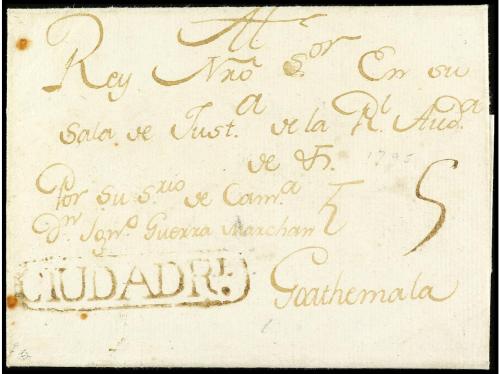 Al
Rey Nrõ S.or En su
Sala de Just.a de la Rl Aud.a
de
Por su s.rio de Cam.a
Dn Ign.o Guerra Marchan
5
CIUDADRL.
Goathemala
1795